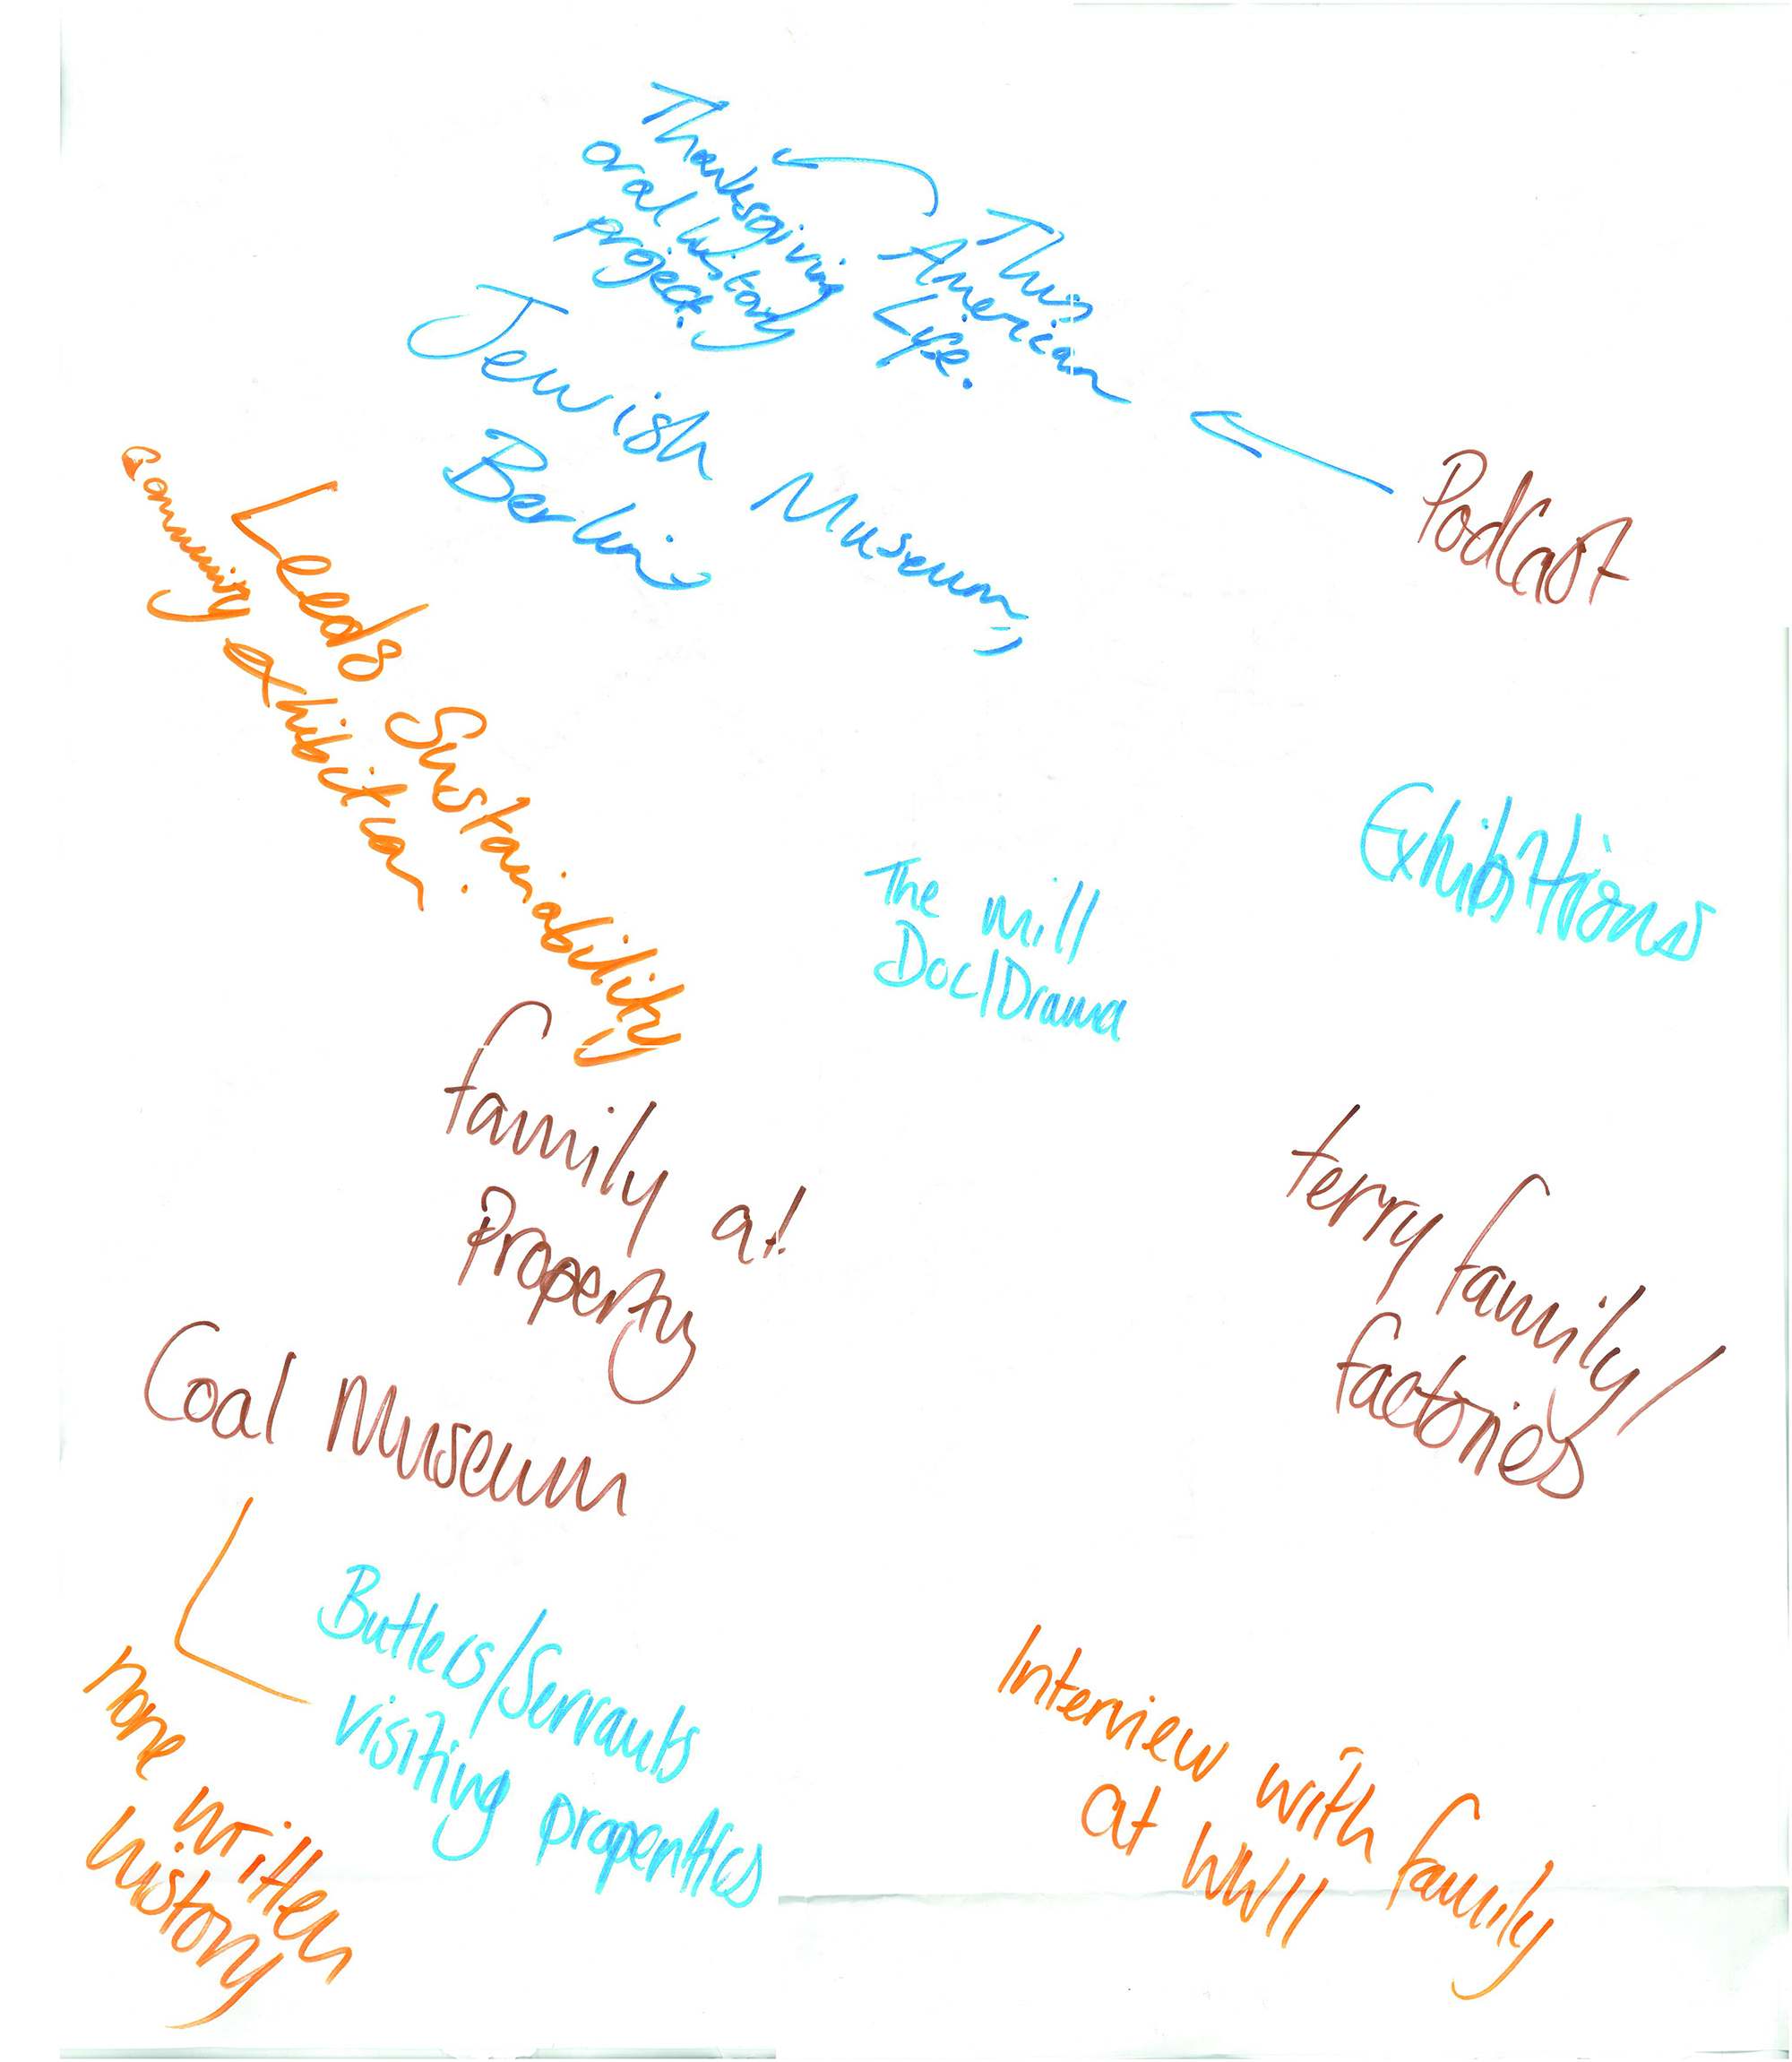 Thanksgiving
oral history
project.
This
American
Life.
Jewish Museum,
Berlin
Podcast
Leeds Sustainability
Community exhibition.
Exhibitions
The mill
Doc/Drama
family at
Property
terry family/
factories
Coal Museum
Butlers/Servants
visiting properties
more written
history
Interview with family
at WWII